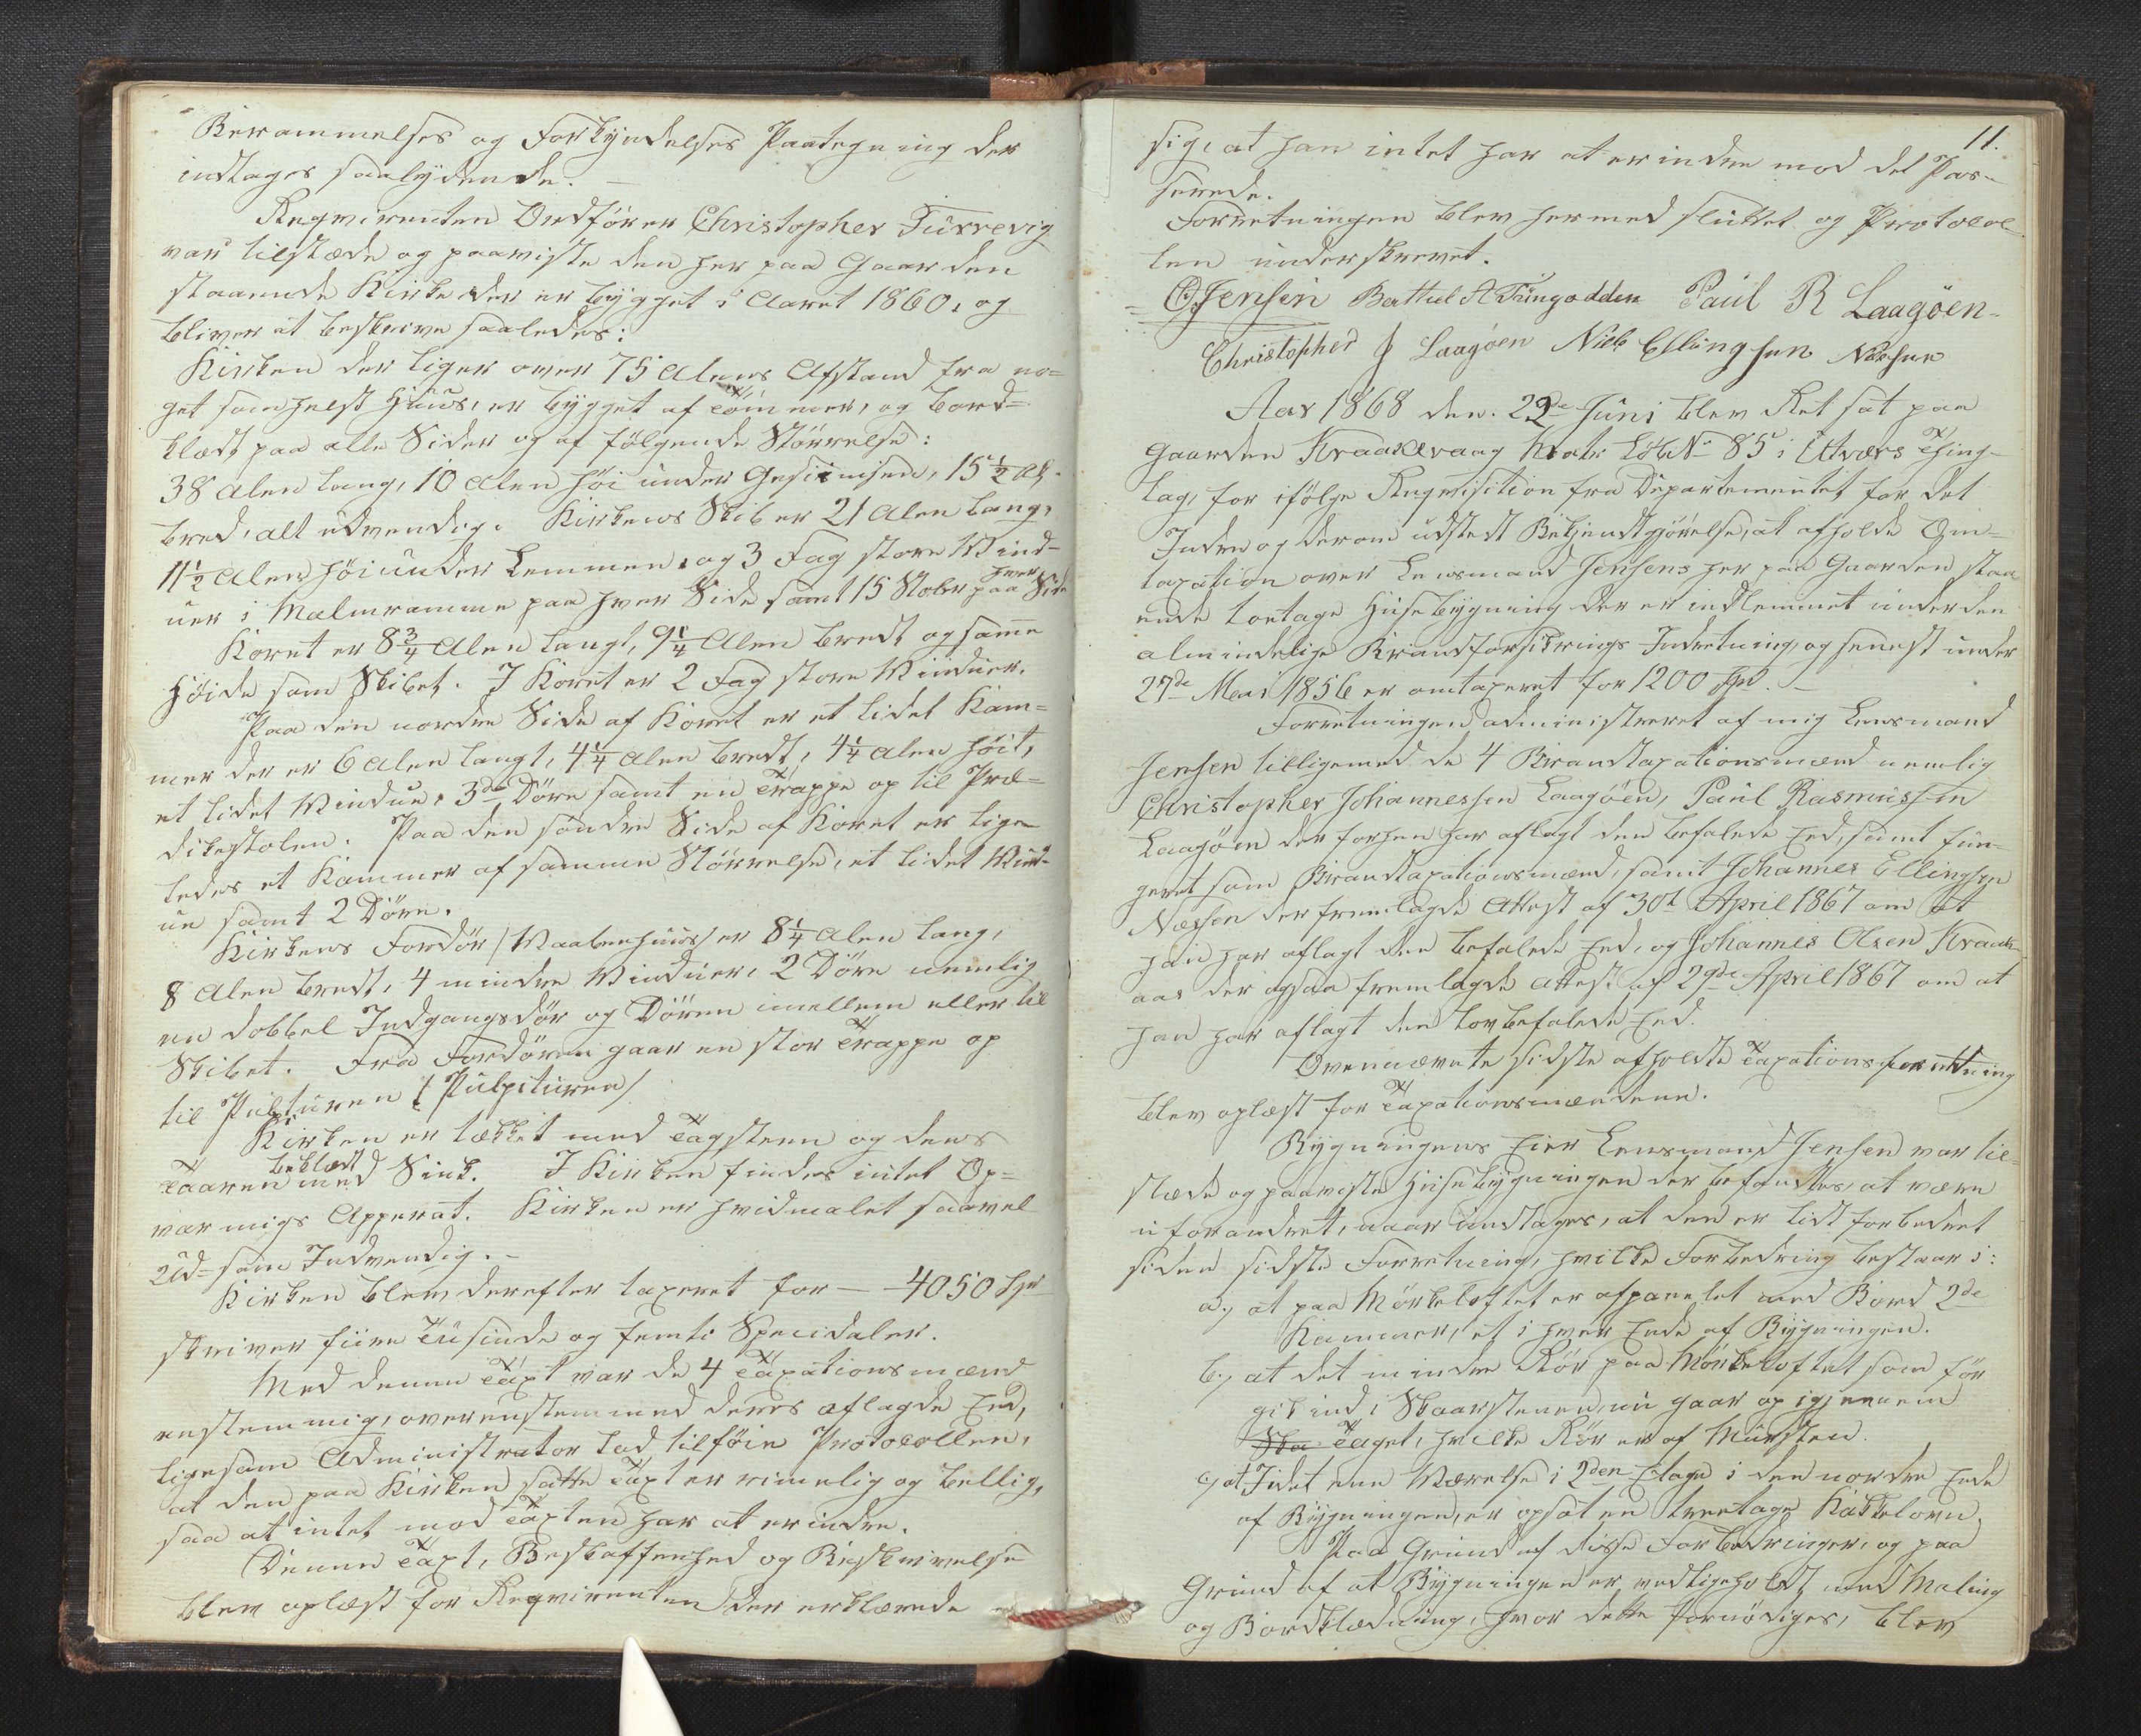 Berammelses og Forkyndelses Paategning der
indtages saalydende. —
Reqvirenten Ordfører Christopher Færrevig
var tilstæde og paaviste den her paa Gaarden
staaende Kirke der er bygget i Aaret 1860, og
bliver at beskrive saaledes:
Kirken der liger over 75 Alens Afstand fra no-
get somhelst Huus, er bygget af Tømmer, og bord-
klædt paa alle Sider og af følgende Størrelse:
38 Alen lang, 10 Alen høi under Gesimsen, 15½ Al.
bred, alt udvendig. Kirkens Skib er 21 Alen lang,
11½ Alen høi under Lemmen, og 3 Fag store Vind-
uer i Malmramme paa hver Side samt 15 Stoler paa hver Side
Koret er 8¾ Alen langt, 9¼ Alen bredt og samme
Høide som Skibet. I Koret er 2 Fag store Vinduer.
Paa den nordre Side af Koret er et lidet Kam-
mer der er 6 Alen langt, 4¼ Alen bredt, 4¼ Alen høit,
et lidet Vindue, 3de Døre samt en Trappe op til Præ-
dikestolen. Paa den søndre Side af Koret er lige-
ledes et Kammer af samme Størrelse, et lidet Vind-
ue samt 2 Døre.
Kirkens Fordør /Vaabenhuus/ er 8¼ Alen lang,
8 Alen bredt, 4 mindre Vinduer, 2 Døre nemlig
en dobbel Indgangsdør og Døren imellem eller til
Skibet. Fra Fordøren gaar en stor Trappe op
til Pulpturen /Pulpituren/
Kirken er tækket med Tagsteen og dens
Taaren beklædt med Sink. I Kirken findes intet Op-
varmigs Apperat. Kirken er hvidmalet saavel
Ud- som Indvendig. —
Kirken blev derefter taxeret for — 4050 Spd
skriver fiire Tusinde og femti Specidaler.
Med denne Taxt var de 4 Taxationsmænd
enstemmig, overenstemmed deres aflagde Eed,
ligesom Administrator lod tilføie Protocollen,
at den paa Kirken satte Taxt er rimelig og billig,
saa at intet mod Taxten har at erindre.
Denne Taxt, Beskaffenhed og Beskrivelse
blev oplæst for Reqvirenten der erklærede
11.
sig, at han intet har at erindre mod det Pas-
serede.
Forretningen blev hermed sluttet og Protocol-
len underskrevet.
O Jensen Berthel A Tungodden Paul R Laagøen
Christopher J Laagøen Niels Ellingsen Næssen
Aar 1868 den 22de Juni blev Ret sat paa
Gaarden Kraakevaag Matr Løb No 85 i Utværs Thing-
lag, for ifølge Reqvisition fra Departementet for det
Indre og derom udstedt Bekjendtgjørelse, at afholde Om-
taxation over Lensmand Jensens her paa Gaarden staa
ende toetage Husebygning der er indlemmet under den
almindelige Brandforsikrings Indretning, og senest under
27de Mai 1856 er omtaxeret for 1200 Spd. —
Forretningen administreret af mig Lensmand
Jensen tilligemed de 4 Brandtaxationsmænd nemlig
Christopher Johannessen Laagøen, Paul Rasmussen
Laagøen der forhen har aflagt den befalede Eed, samt fun-
geret som Brandtaxationsmænd, samt Johannes Ellingsen
Næssen der fremlagde Attest af 30te April 1867 om at
han har aflagt den befalede Eed, og Johannes Olsen Kraak-
aas der ogsaa fremlagde Attest af 29de April 1867 om at
han har aflagt den lovbefalede Eed.
Ovennævnte sidste afholdte Taxationsforretning
blev oplæst for Taxationsmændene.
Bygningens Eier Lensmand Jensen var til-
stæde og paaviste Husebygningen der befandtes, at være
uforandret, naar undtages, at den er lidt forbedret
siden sidste Forretning, hvilke Forbedring bestaar i:
a, at paa Mørkeloftet er afpanelet med Bord 2de
Kammer, et i hver Ende af Bygningen.
b, at det mindre Rør paa Mørkeloftet som før
gik ind i Skaarstenen, nu gaar op igjennem
Ska Taget, hvilke Rør er af Mursten.
c, at I det ene Værelse i 2den Etage i den nordre Ende
af Bygningen, er opsat en treetage Kakkelovn.
Paa Grund af disse Forbedringer, og paa
Grund af at Bygningen er vedligeholdt med Maling
og Bordklædning, hvor dette fornødiges, blev